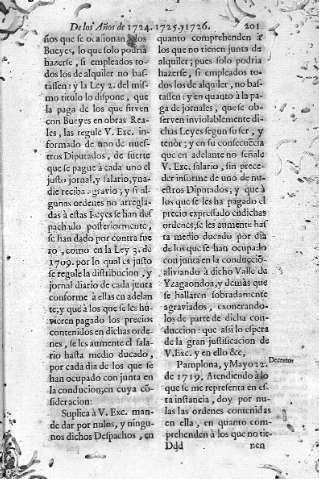 De los Años de 1724. 1725. y 1726. 201
ños que se ocasionan a los
Bueyes, lo que solo podria
hazerse, si empleados to-
dos los de alquiler no bas-
tassen: y la Ley 2. del mis-
mo titulo lo dispone, que
la paga de los que sirven
con Bueyes en obras Rea-
les, las regule V. Exc. in-
formado de uno de nues-
tros Diputados, de suerte
que se pague à cada uno el
justo jornal, y salario, y na-
die reciba agravio; y si al-
gunos ordenes no arregla-
das à estas Leyes se han des-
pachado posteriormente,
se han dado por contra fue-
ro, como en la Ley 3. de
1709. por lo qual es justo
se regule la distribucion, y
jornal diario de cada junta
conforme à ellas en adelan-
te, y que à los que se les hu-
vieren pagado los precios
contenidos en dichas orde-
nes, se les aumente el sala-
rio hasta medio ducado,
por cada dia de los que se
han ocupado con junta en
la conducion, en cuya co-
sideracion:
Suplica à V. Exc. man-
de dar por nulos, y ningu-
nos dichos Despachos, en
quanto comprehenden à
los que no tienen junta de
alquiler; pues solo podria
hazerse, si empleados to-
dos los de alquiler, no bas-
tassen: y en quanto à la pa-
ga de jornales, que se ob-
serven inviolablemente di-
chas Leyes segun su ser, y
tenor; y en su consecuencia
que en adelante no señale
V. Exc. salario, sin prece-
der informe de uno de nu-
estros Diputados, y que à
los que se les ha pagado el
precio expressado en dichas
ordenes, se les aumente has-
ta medio ducado por dia
de los que se han ocupado
con junta en la conducciō
aliviando à dicho Valle de
Yzagaondoa, y demàs que
se hallaren sobradamente
agraviados, exonerando-
los de parte de dicha con-
duccion: que assi lo espera
de la gran justificacion de
V. Exc. y en ello &c,
Pamplona, y Mayo 12. Decreto
de 1719, Atendiendo à lo
que se me representa en es-
ta instancia, doy por nu-
las las ordenes contenidas
en ella, en quanto com-
prehenden à los que no tie-
Ddd nen